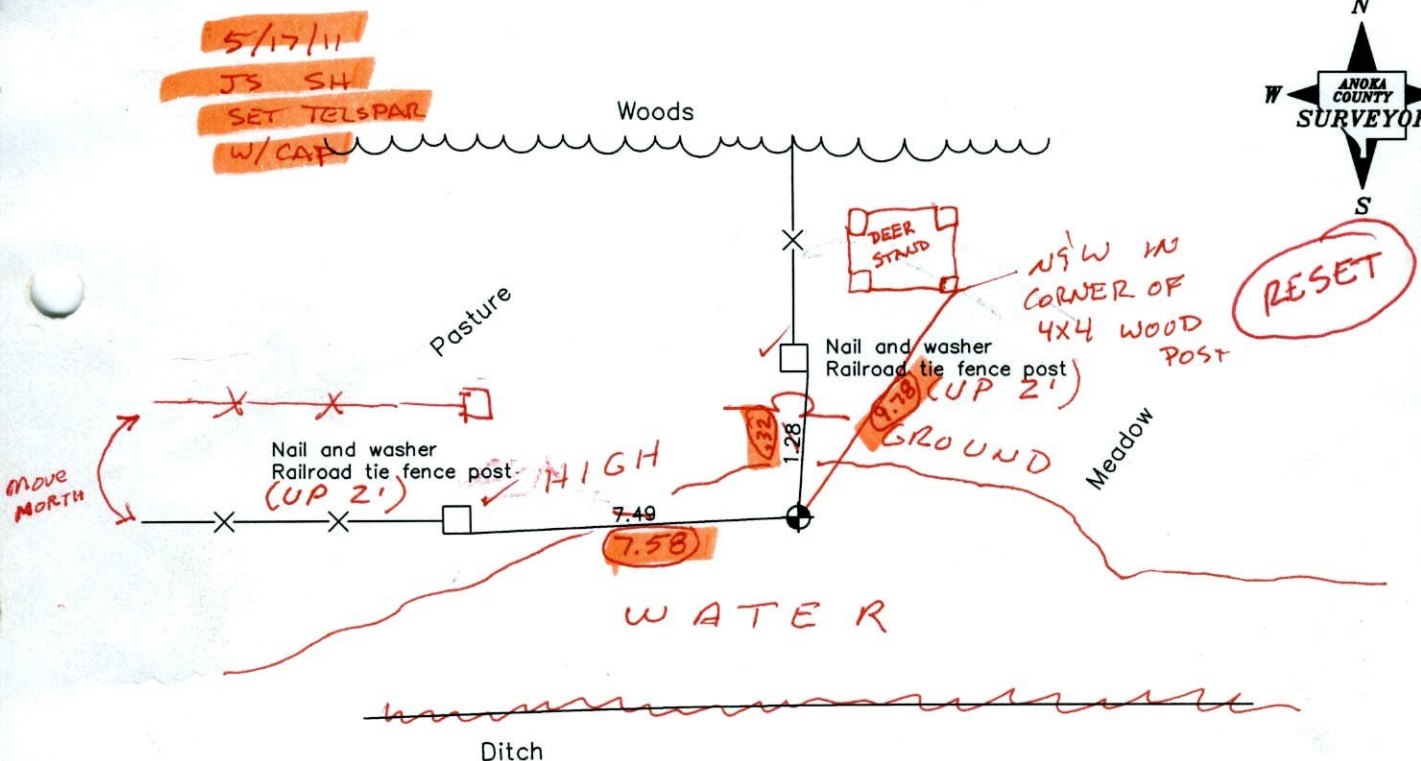 5/17/11
JS SH
SET TELSPAR
W/CAP
Woods
N
W
ANOKA
COUNTY
SURVEYOR
S
RESET
DEER
STAND
N&W IN
CORNER OF
4X4 WOOD
POST
Pasture
Nail and washer
Railroad tie fence post
(UP 2')
9.78
GROUND
Meadow
.32
1.28
MOVE
NORTH
Nail and washer
Railroad tie fence post
(UP 2')
HIGH
7.49
7.58
WATER
Ditch